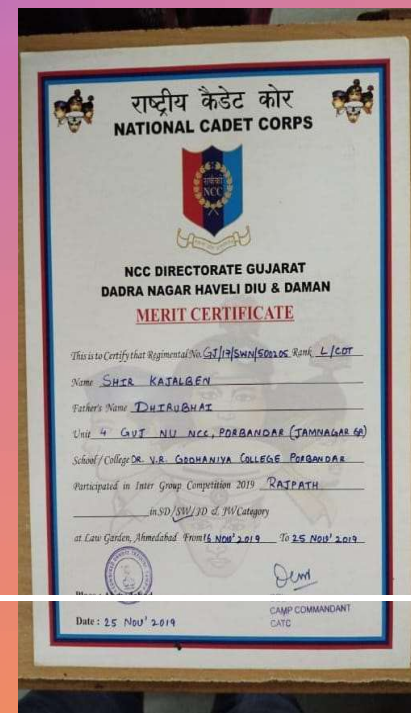 राष्ट्रीय कैडेट कोर
NATIONAL CADET CORPS
NCC
NCC DIRECTORATE GUJARAT
DADRA NAGAR HAVELI DIU & DAMAN
MERIT CERTIFICATE
This is to Certify that Regimental No. GJ/17/SWN/500205 Rank L/CDT
Name SHIR KAJALBEN
Father's Name DHIRUBHAI
Unit 4 GUJ NU NCC, PORBANDAR (JAMNAGAR GP)
School / College DR. V.R. GODHANIYA COLLEGE PORBANDAR
Participated in Inter Group Competition 2019 RAJPATH
in SD/SW/JD & JW Category
at Law Garden, Ahmedabad From 16 NOV' 2019 To 25 NOV' 2019
CAMP COMMANDANT
CATC
Date : 25 NOV' 2019